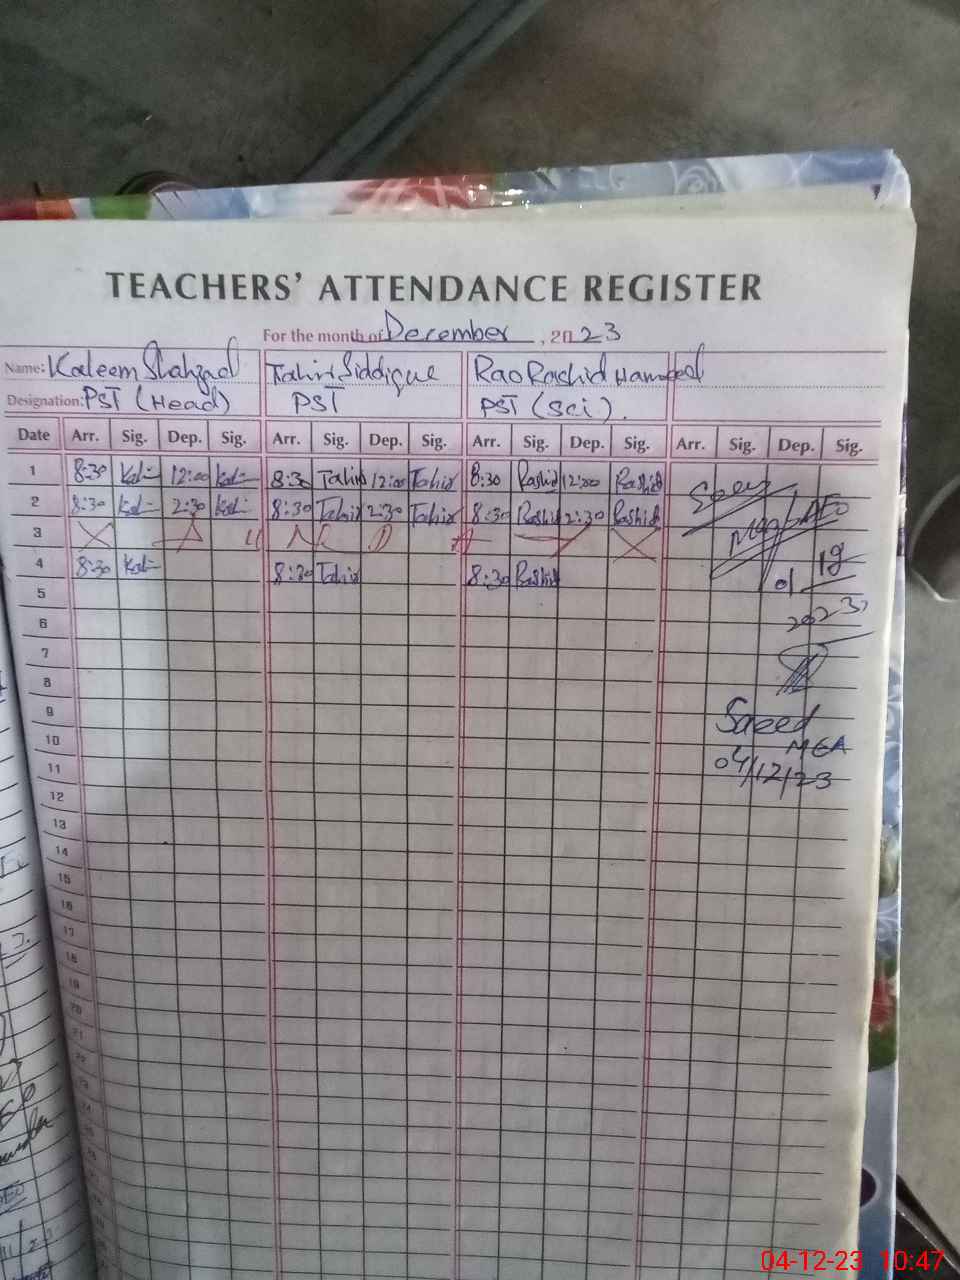 TEACHERS' ATTENDANCE REGISTER
For the month of December, 2023
Name: Kaleem Shahzad Tahir Siddique Rao Rashid Hameed
Designation: PST (Head) PST PST (Sci).
Date Arr. Sig. Dep. Sig. Arr. Sig. Dep. Sig. Arr. Sig. Dep. Sig. Arr. Sig. Dep. Sig.
1 8:30 12:00 8:30 Tahir 12:00 Tahir 8:30 Rashid 12:00 Rashid
2 8:30 2:30 8:30 Tahir 2:30 Tahir 8:30 Rashid 2:30 Rashid
3
4 8:30 8:30 Tahir 8:30 Rashid
5
6
7
8
9
10
11
12
13
14
15
16
17
18
19
20
21
22
AEO
01
2023
Saeed
MEA
04/12/23
04-12-23 10:47